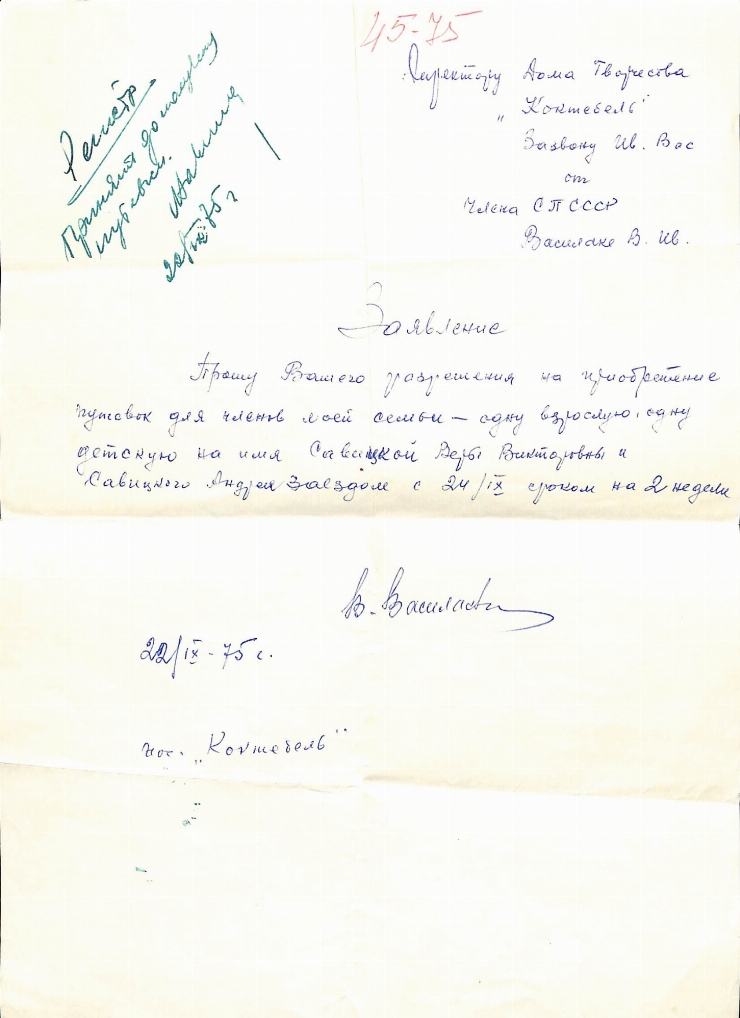 45-75
Директору Дома Творчества
"Коктебель"
Зазвону Ив. Вас
от
Члена СП СССР
Василаке В. Ив.
Регистр
Принять
22/IX 75 г
Заявление
Прошу Вашего разрешения на приобретение
путевок для членов моей семьи — одну взрослую, одну
детскую на имя Савицкой Веры Викторовны и
Савицкого Андрея Заездом с 24/IX сроком на 2 недели
В. Василаке
22/IX - 75 г.
пос. „Коктебель"